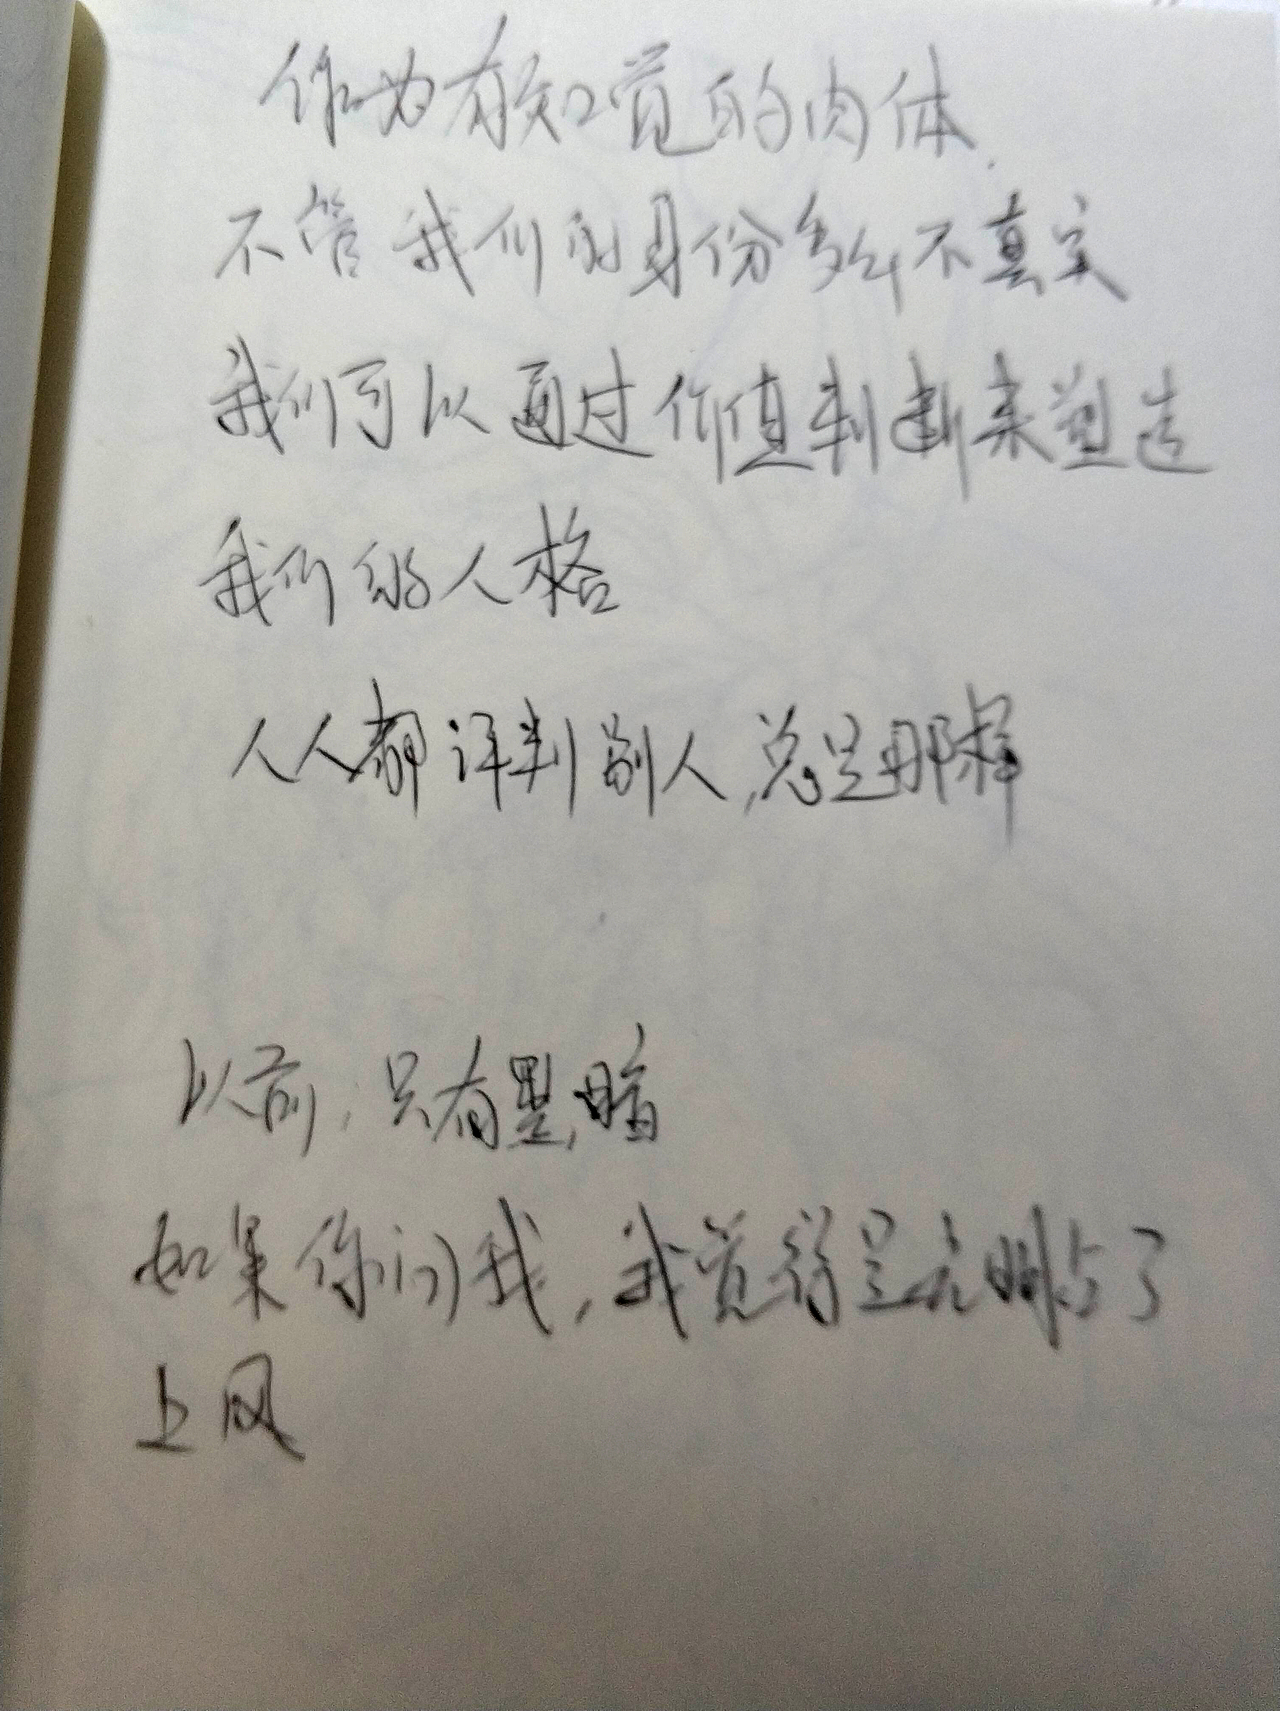 作为有知觉的肉体.
不管我们的身份多么不真实
我们可以通过价值判断来塑造
我们的人格
人人都评判别人,总是那样
以前,只有黑暗
如果你问我,我觉得是光明占了
上风